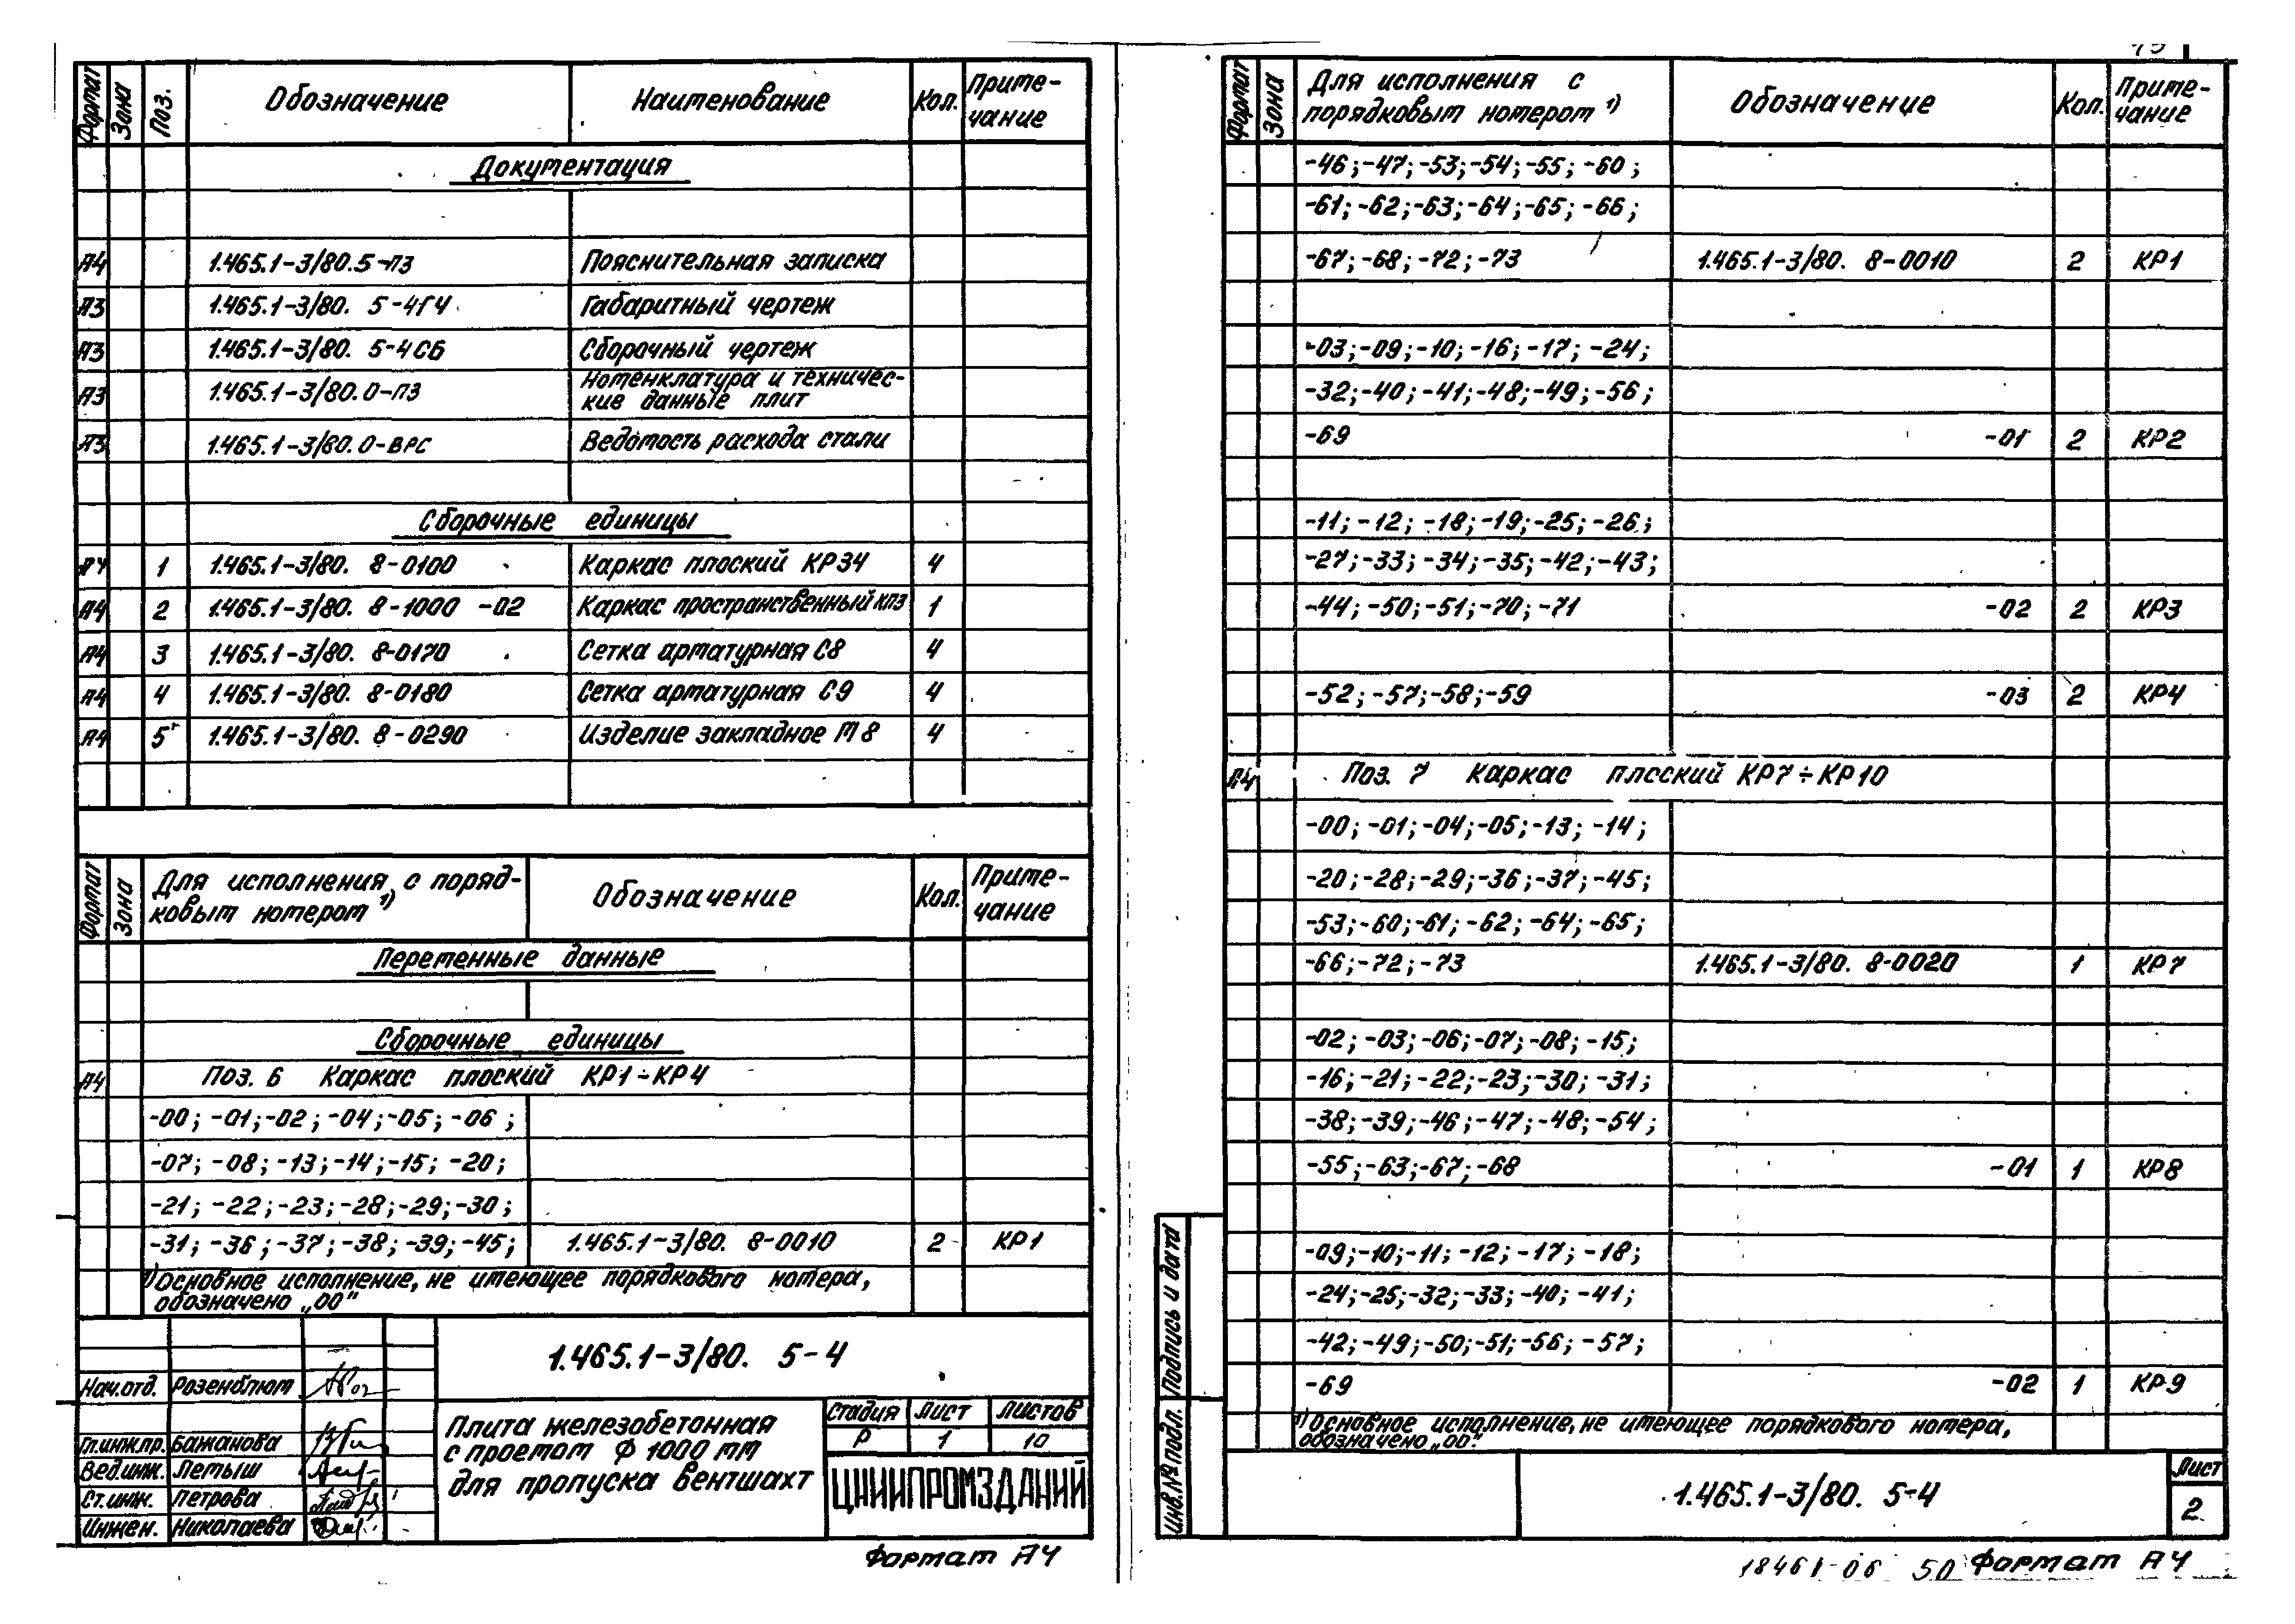 Формат Зона Поз. Обозначение Наименование Кол. Примечание
Документация
А4 1.465.1-3/80.5-ПЗ Пояснительная записка
А3 1.465.1-3/80. 5-4ГЧ Габаритный чертеж
А3 1.465.1-3/80. 5-4СБ Сборочный чертеж
А3 1.465.1-3/80.0-ПЗ Номенклатура и техничес-
кие данные плит
А3 1.465.1-3/80.0-ВРС Ведомость расхода стали
Сборочные единицы
А4 1 1.465.1-3/80. 8-0100 Каркас плоский КР34 4
А4 2 1.465.1-3/80. 8-1000 -02 Каркас пространственный КП3 1
А4 3 1.465.1-3/80. 8-0170 Сетка арматурная С8 4
А4 4 1.465.1-3/80. 8-0180 Сетка арматурная С9 4
А4 5 1.465.1-3/80. 8-0290 Изделие закладное М8 4
Формат Зона Для исполнения с поряд-
ковым номером 1) Обозначение Кол. Приме-
чание
Переменные данные
Сборочные единицы
А4 Поз. 6 Каркас плоский КР1÷КР4
-00; -01; -02; -04; -05; -06;
-07; -08; -13; -14; -15; -20;
-21; -22; -23; -28; -29; -30;
-31; -36; -37; -38; -39; -45; 1.465.1-3/80. 8-0010 2 КР1
1) Основное исполнение, не имеющее порядкового номера,
обозначено „00"
1.465.1-3/80. 5-4
Нач.отд. Розенблюм
Гл.инж.пр. Бажанова
Вед.инж. Летыш
Ст.инж. Петрова
Инжен. Николаева
Плита железобетонная
с проемом ф 1000 мм
для пропуска вентшахт
Стадия Лист Листов
Р 1 10
ЦНИИПРОМЗДАНИЙ
Формат А4
Формат Зона Для исполнения с
порядковым номером 1) Обозначение Кол. Приме-
чание
-46; -47; -53; -54; -55; -60;
-61; -62; -63; -64; -65; -66;
-67; -68; -72; -73 1.465.1-3/80. 8-0010 2 КР1
-03; -09; -10; -16; -17; -24;
-32; -40; -41; -48; -49; -56;
-69 -01 2 КР2
-11; -12; -18; -19; -25; -26;
-27; -33; -34; -35; -42; -43;
-44; -50; -51; -70; -71 -02 2 КР3
-52; -57; -58; -59 -03 2 КР4
А4 Поз. 7 Каркас плоский КР7÷КР10
-00; -01; -04; -05; -13; -14;
-20; -28; -29; -36; -37; -45;
-53; -60; -61; -62; -64; -65;
-66; -72; -73 1.465.1-3/80. 8-0020 1 КР7
-02; -03; -06; -07; -08; -15;
-16; -21; -22; -23; -30; -31;
-38; -39; -46; -47; -48; -54;
-55; -63; -67; -68 -01 1 КР8
-09; -10; -11; -12; -17; -18;
-24; -25; -32; -33; -40; -41;
-42; -49; -50; -51; -56; -57;
-69 -02 1 КР9
1) Основное исполнение, не имеющее порядкового номера,
обозначено „00".
Инв.№подл. Подпись и дата
1.465.1-3/80. 5-4
Лист
2
18461-06 50 Формат А4